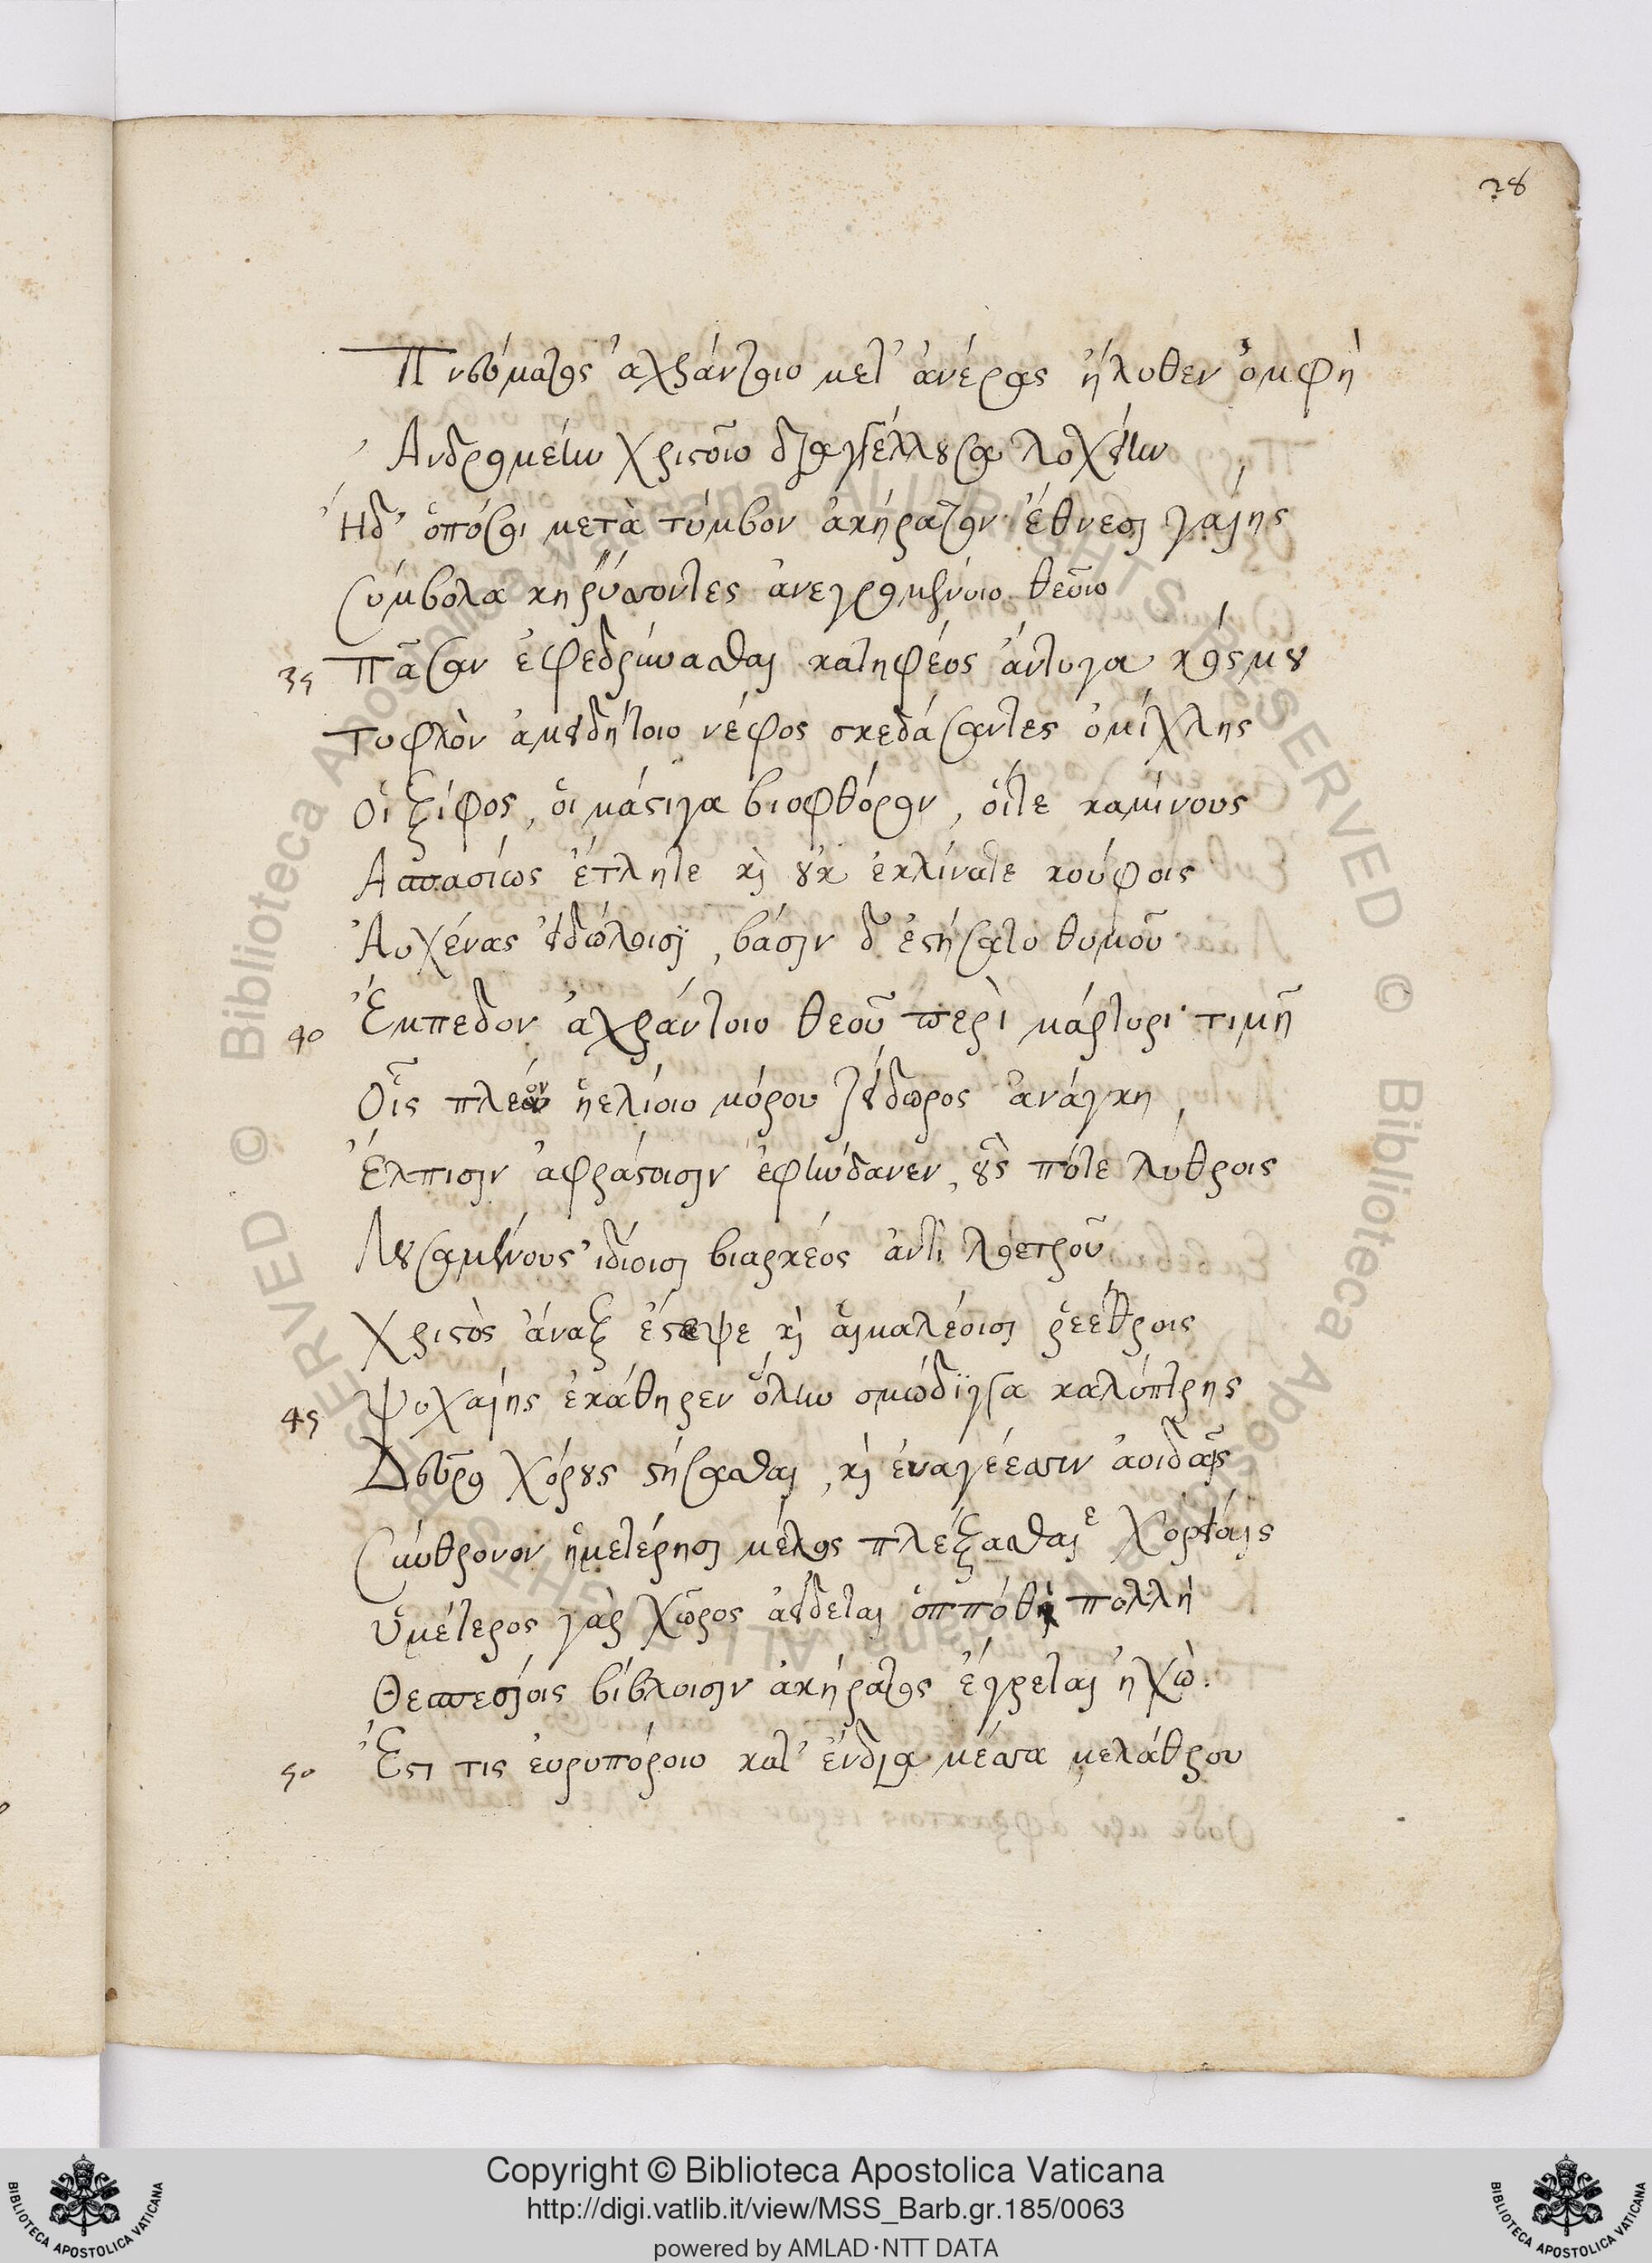 28
Πνεύματος ἀχράντοιο μετ' ἀνέρας ἤλυθεν ὀμφὴ
Ἀνδρομέην χριστοῖο διαγγέλλουσα λοχείην
Ἠδ' ὁπόσοι μετὰ τύμβον ἀκήρατον ἔθνεσι γαίης
Σύμβολα κηρύσσοντες ἀνεγρομένοιο θεοῖο
35 Πᾶσαν ἐφεδρήσασθαι κατηφέος ἄντυγα κόσμου
Τυφλὸν ἀμειδήτοιο νέφος σκεδάσαντες ὀμίχλης
Οἳ ξίφος, οἳ μάστιγα βιοφθόρον, οἵτε καμίνους
Ἀσπασίως ἔτλητε καὶ οὐκ ἐκλίνατε κούφοις
Αὐχένας εἰδώλοισι, βάσιν δ' ἐστήσατο θυμοῦ
40 Ἔμπεδον ἀχράντοιο θεοῦ περὶ μάρτυρι τιμῇ
Οἷς πλέον ἠελίοιο μόρου ζείδωρος ἀνάγκη,
Ἐλπισιν ἀφράστοισιν ἐφήνδανεν, οὕς πότε λυθροις
Λουσαμένους ἰδίοισι βιαρκέος ἀντὶ λοετροῦ
Χριστὸς ἄναξ ἔστεψε καὶ αἱμαλέοισι ῥεέθροις
45 Ψυχαίης ἐκάθηρεν ὅλην σμώδιγγα καλύπτρης
Δεῦρο χόρους στήσασθαι, καὶ εὐαγέεσσιν ἀοιδαῖς
Σύνθρονον ἡμετέρησι μέλος πλέξασθαι χορείαις
Ὑμέτερος γὰρ χῶρος ἀείδεται ὁππόθι πολλὴ
Θεσπεσίοις βίβλοισιν ἀκήρατος ἔγρεται ἠχὼ.
50 Ἔστι τις ἐυρυπόροιο κατ' ἔνδια μέσσα μελάθρου
Copyright © Biblioteca Apostolica Vaticana
http://digi.vatlib.it/view/MSS_Barb.gr.185/0063
powered by AMLAD·NTT DATA